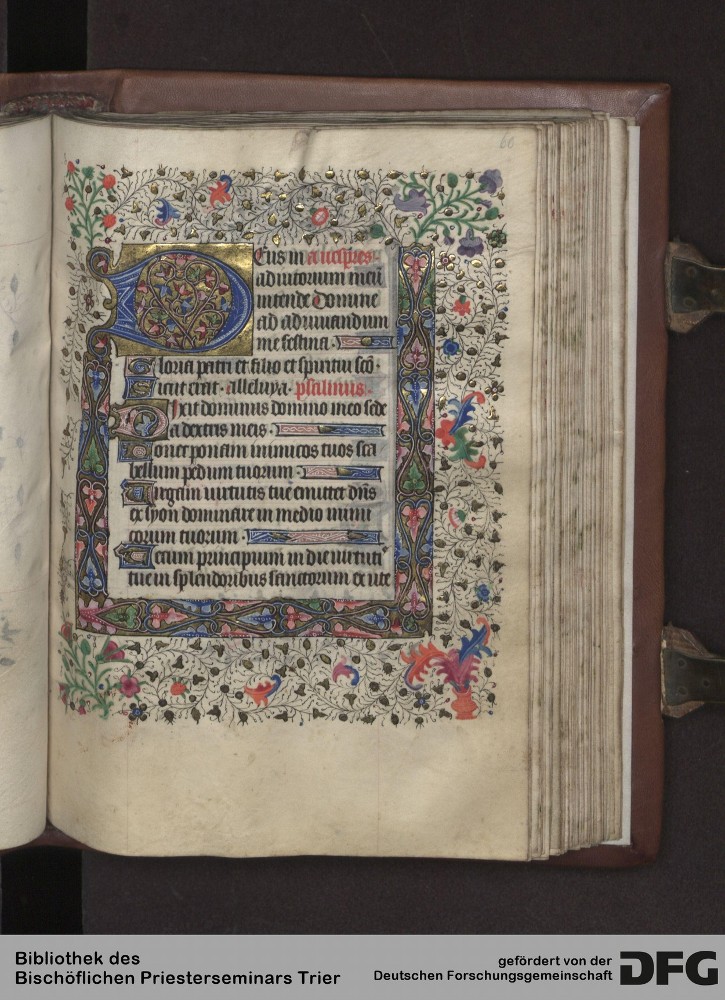 60
Deus in ad vespres.
adiutorium meū
intende Domine
ad adiuuandum
me festina.
Gloria patri et filio et spiritui scō.
Sicut erat. alleluya. psalmus.
Dixit dominus domino meo sede
a dextris meis.
Donec ponam inimicos tuos sca
bellum pedum tuorum.
Uirgam uirtutis tue emittet dn̄s
ex syon dominare in medio inimi
corum tuorum.
Tecum principium in die uirtuti
tue in splendoribus sanctorum ex ute
Bibliothek des
Bischöflichen Priesterseminars Trier
gefördert von der
Deutschen Forschungsgemeinschaft
DFG